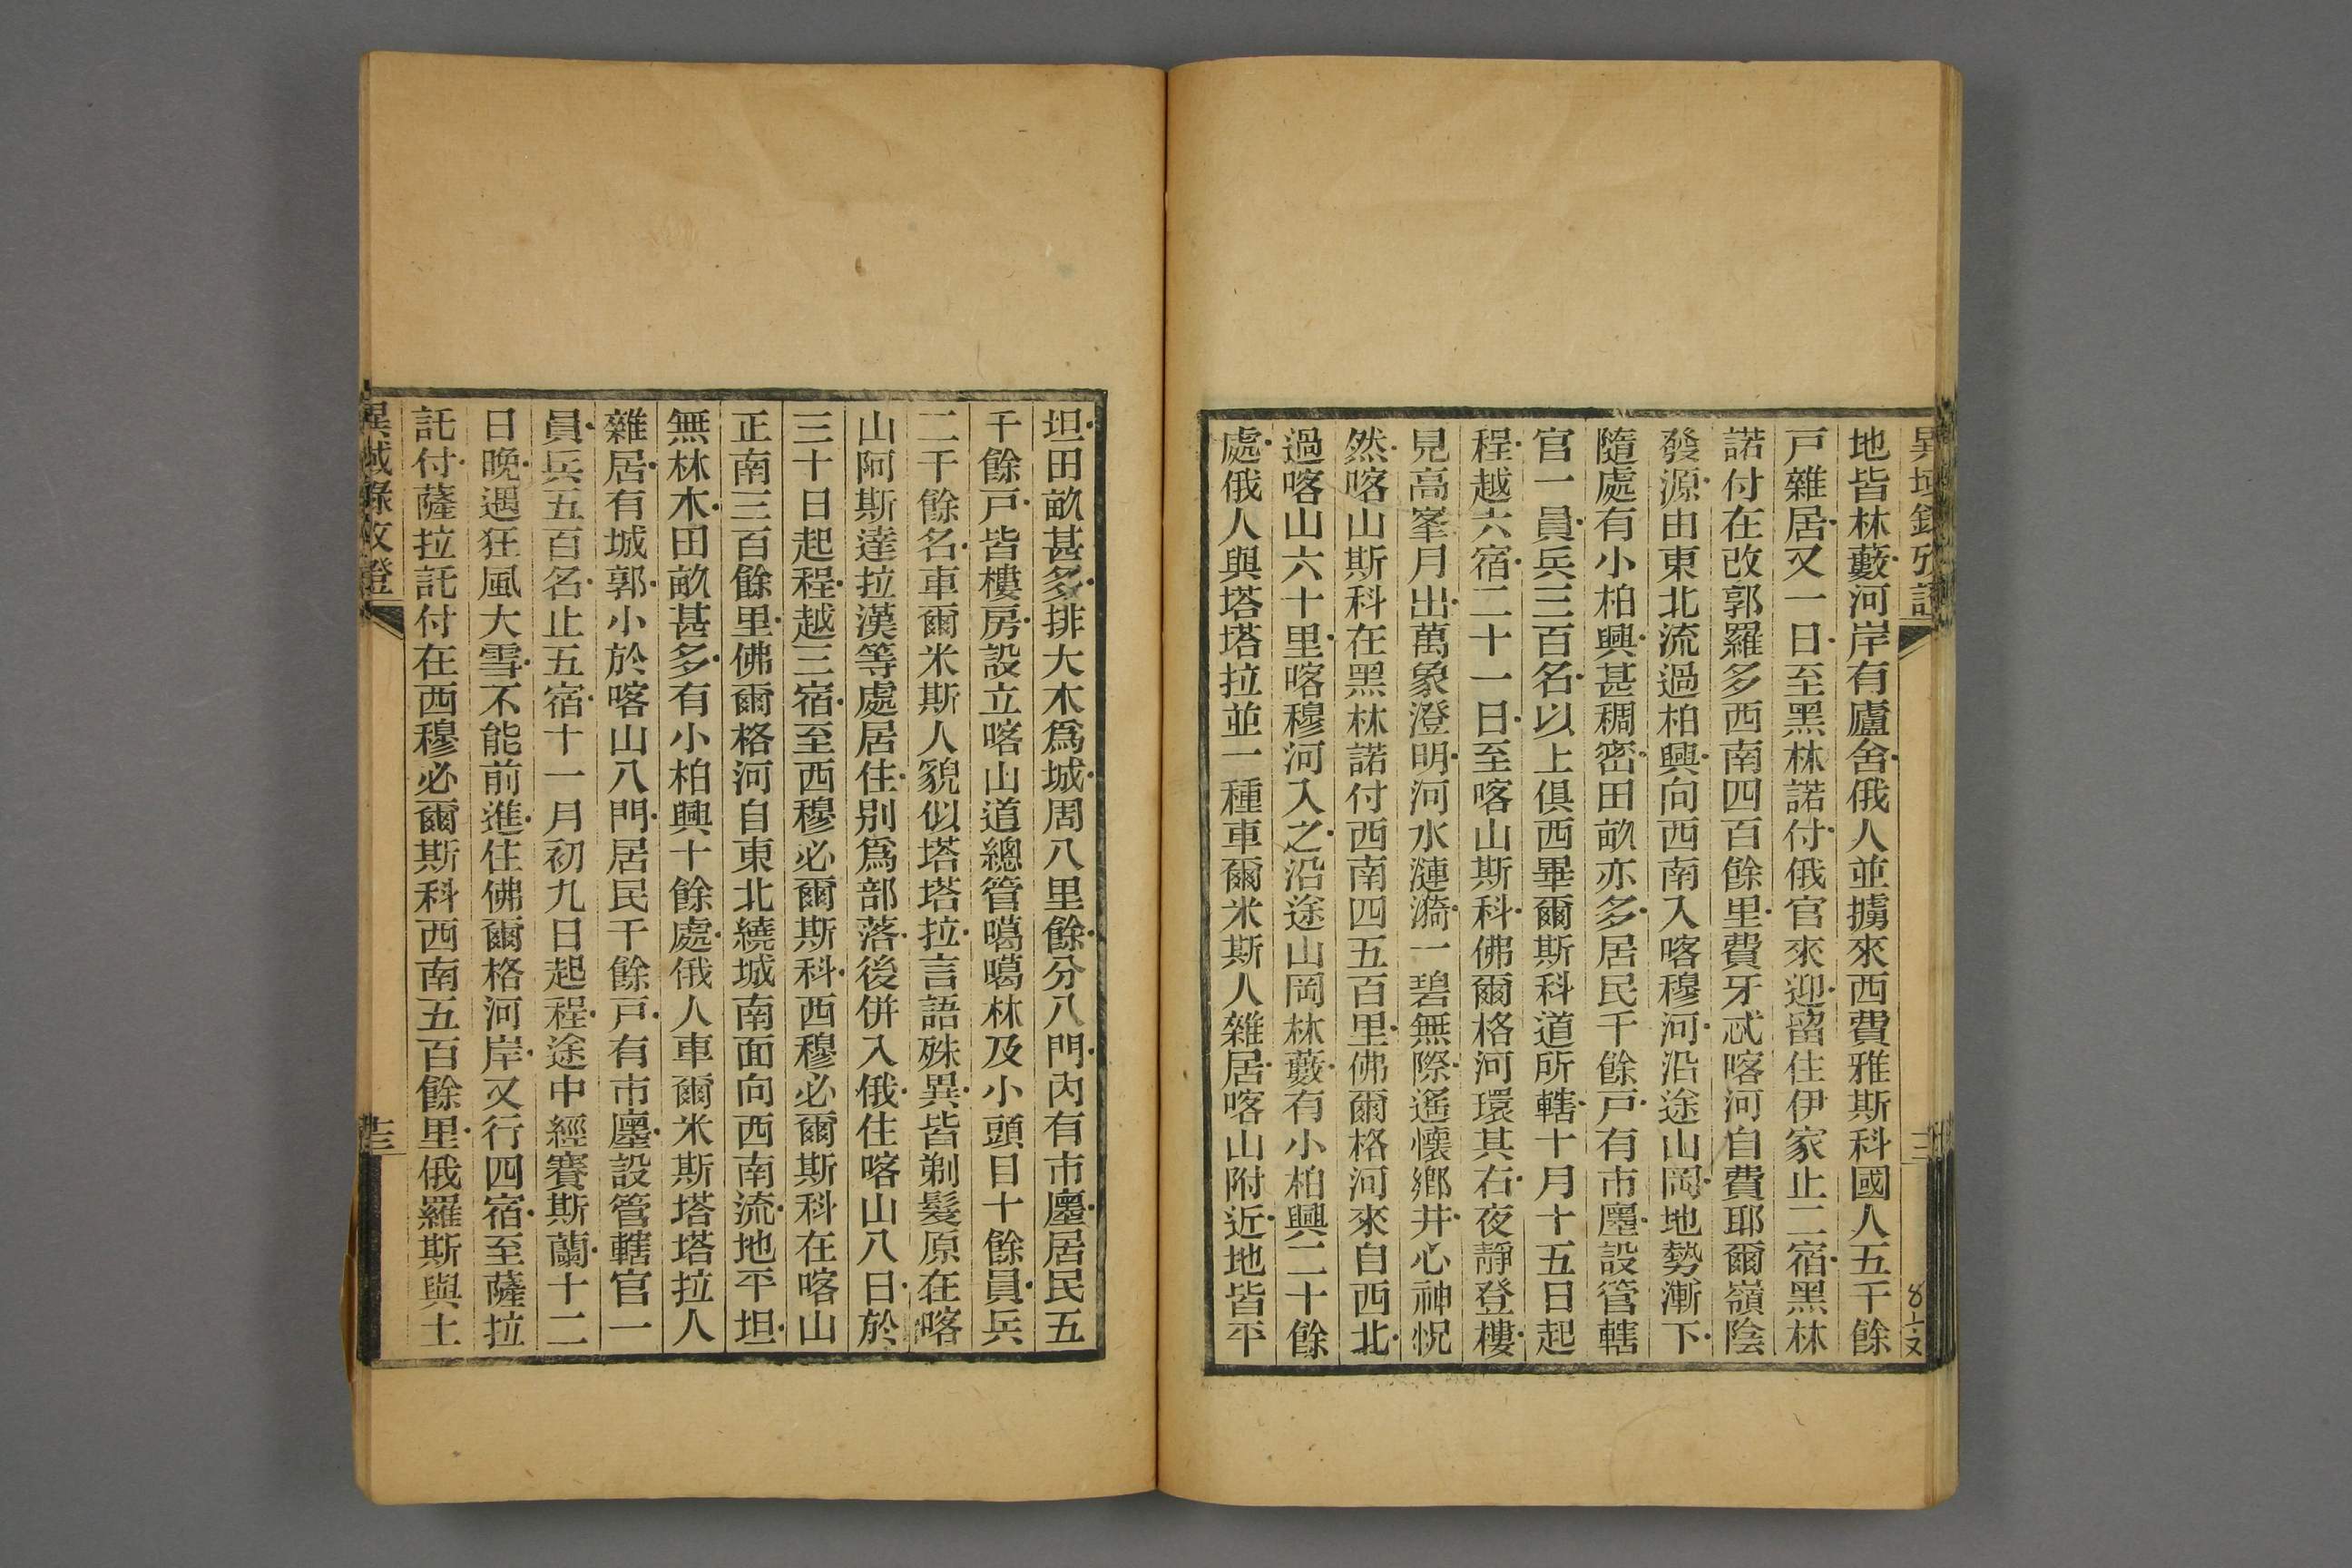 地皆林藪河岸有廬舍俄人並擄來西費雅斯科國人五千餘
戸雜居又一日至黑林諾付俄官來迎留住伊家止二宿黑林
諾付在改郭羅多西南四百餘里費牙忒喀河自費耶爾嶺陰
發源由東北流過柏興向西南入喀穆河沿途山岡地勢漸下
隨處有小柏興甚稠密田畝亦多居民千餘戸有市廛設管轄
官一員兵三百名以上俱西畢爾斯科道所轄十月十五日起
程越六宿二十一日至喀山斯科佛爾格河環其右夜靜登樓
見高峯月出萬象澄明河水漣漪一碧無際遙懷鄉井心神怳
然喀山斯科在黑林諾付西南四五百里佛爾格河來自西北
過喀山六十里喀穆河入之沿途山岡林藪有小柏興二十餘
處俄人與塔塔拉並一種車爾米斯人雜居喀山附近地皆平
坦田畝甚多排大木爲城周八里餘分八門內有市廛居民五
千餘戸皆樓房設立喀山道總管噶噶林及小頭目十餘員兵
二千餘名車爾米斯人貌似塔塔拉言語殊異皆剃髮原在喀
山阿斯達拉漢等處居住别爲部落後併入俄住喀山八日於
三十日起程越三宿至西穆必爾斯科西穆必爾斯科在喀山
正南三百餘里佛爾格河自東北繞城南面向西南流地平坦
無林木田畝甚多有小柏興十餘處俄人車爾米斯塔塔拉人
雜居有城郭小於喀山八門居民千餘戸有市廛設管轄官一
員兵五百名止五宿十一月初九日起程途中經賽斯蘭十二
日晚遇狂風大雪不能前進住佛爾格河岸又行四宿至薩拉
託付薩拉託付在西穆必爾斯科西南五百餘里俄羅斯與土
異域錄攷證